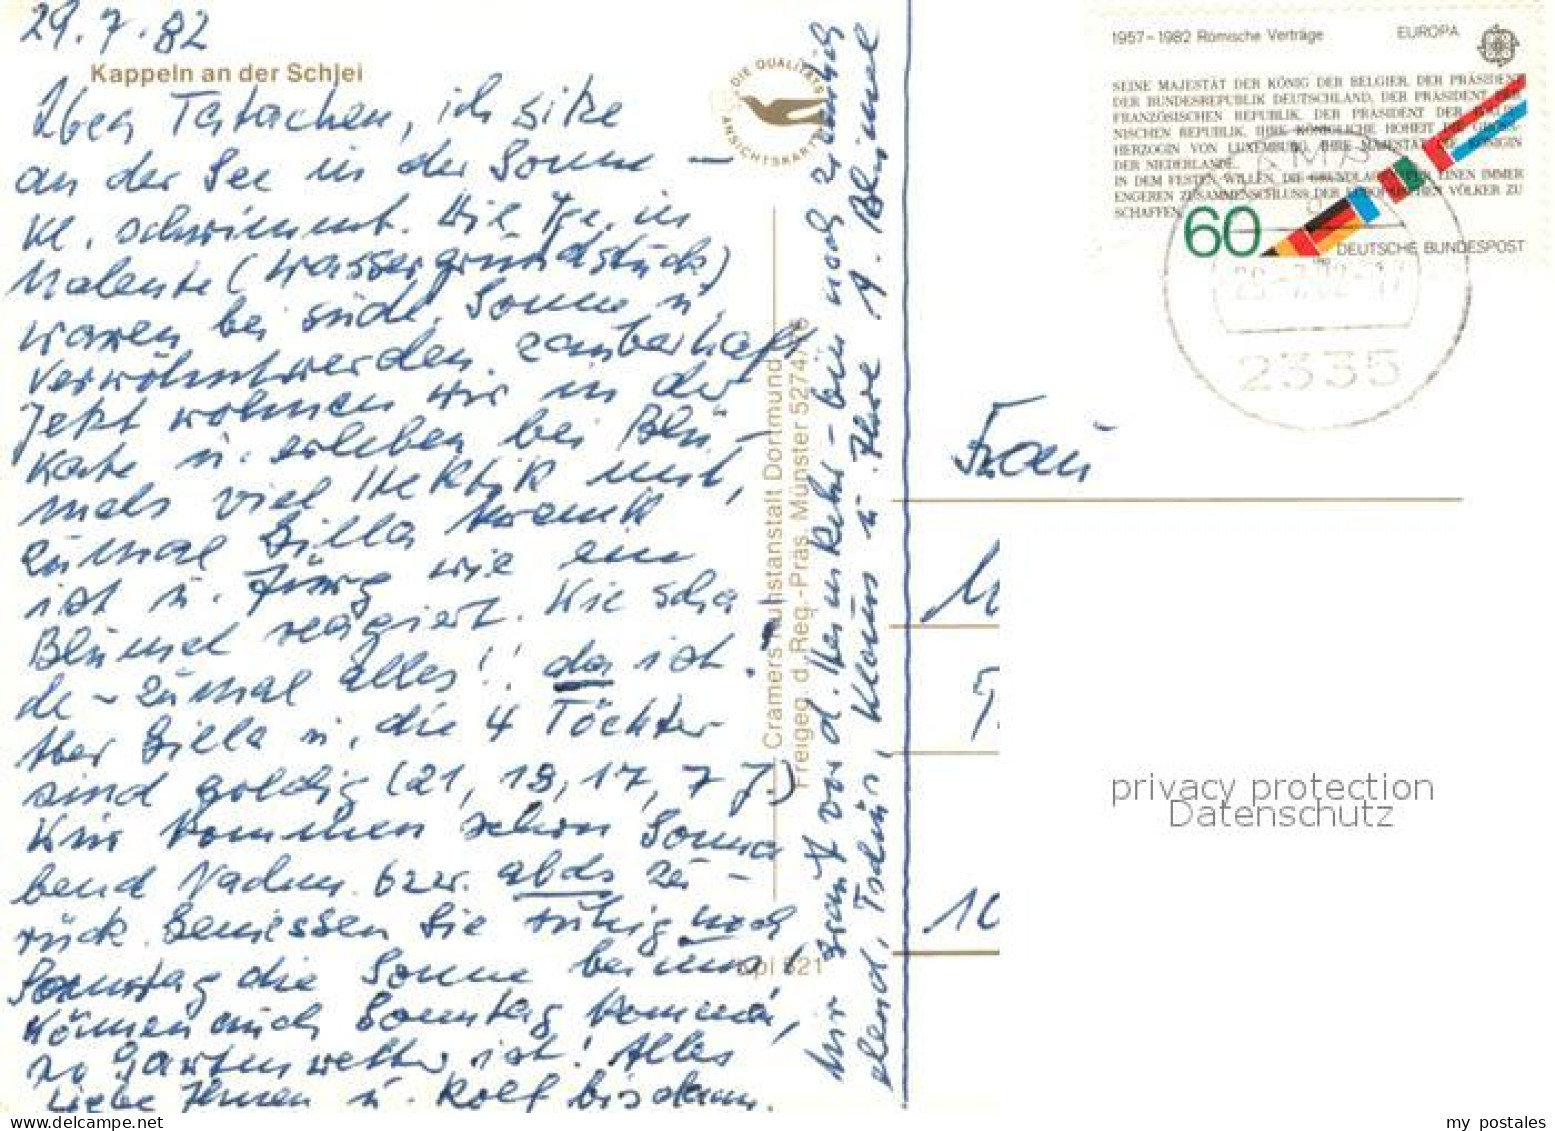 29.7.82
Kappeln an der Schlei
DIE QUALITÄTS
ANSICHTSKARTE
ich sitze
an der See in der Sonne –
Kl. schwimmt. Die Tge. in
Malente (Wassergrundstück)
waren bei südl. Sonne u.
Verwöhntwerden zauberhaft
Jetzt wohnen wir in der
Kate u. erleben bei Blü-
mels viel Hektik mit,
zumal Zilla krank
ist u. Jürg wie ein
Blümel reagiert. Wie scha
de – zumal alles!! da ist.
Aber Zilla u. die 4 Töchter
sind goldig (21, 19, 17, 7 J.)
Wir kommen schon Sonna
bend Nachm. bzw. abds zu-
rück. Geniessen Sie ruhig noch
Sonnstag die Sonne bei uns!
Können auch Sonntag kommen,
wo Gartenwetter ist! Alles
Liebe Ihnen u. Rolf bis dann.
Mir graut vor d. Heimkehr – bin noch ziemlich
elend. Tschüs, Klaus u. Ihre A. Blümel
Cramers Kunstanstalt Dortmund
Freigeg. d. Reg.-Präs. Münster 5274/76
pl 521
1957–1982 Römische Verträge
EUROPA
SEINE MAJESTÄT DER KÖNIG DER BELGIER, DER PRÄSIDENT
DER BUNDESREPUBLIK DEUTSCHLAND, DER PRÄSIDENT DER
FRANZÖSISCHEN REPUBLIK, DER PRÄSIDENT DER ITALIE-
NISCHEN REPUBLIK, IHRE KÖNIGLICHE HOHEIT DIE GROSS-
HERZOGIN VON LUXEMBURG, IHRE MAJESTÄT DIE KÖNIGIN
DER NIEDERLANDE,
IN DEM FESTEN WILLEN, DIE GRUNDLAGEN FÜR EINEN IMMER
ENGEREN ZUSAMMENSCHLUSS DER EUROPÄISCHEN VÖLKER ZU
SCHAFFEN
60
DEUTSCHE BUNDESPOST
2335
Frau
10
privacy protection
Datenschutz
my postales